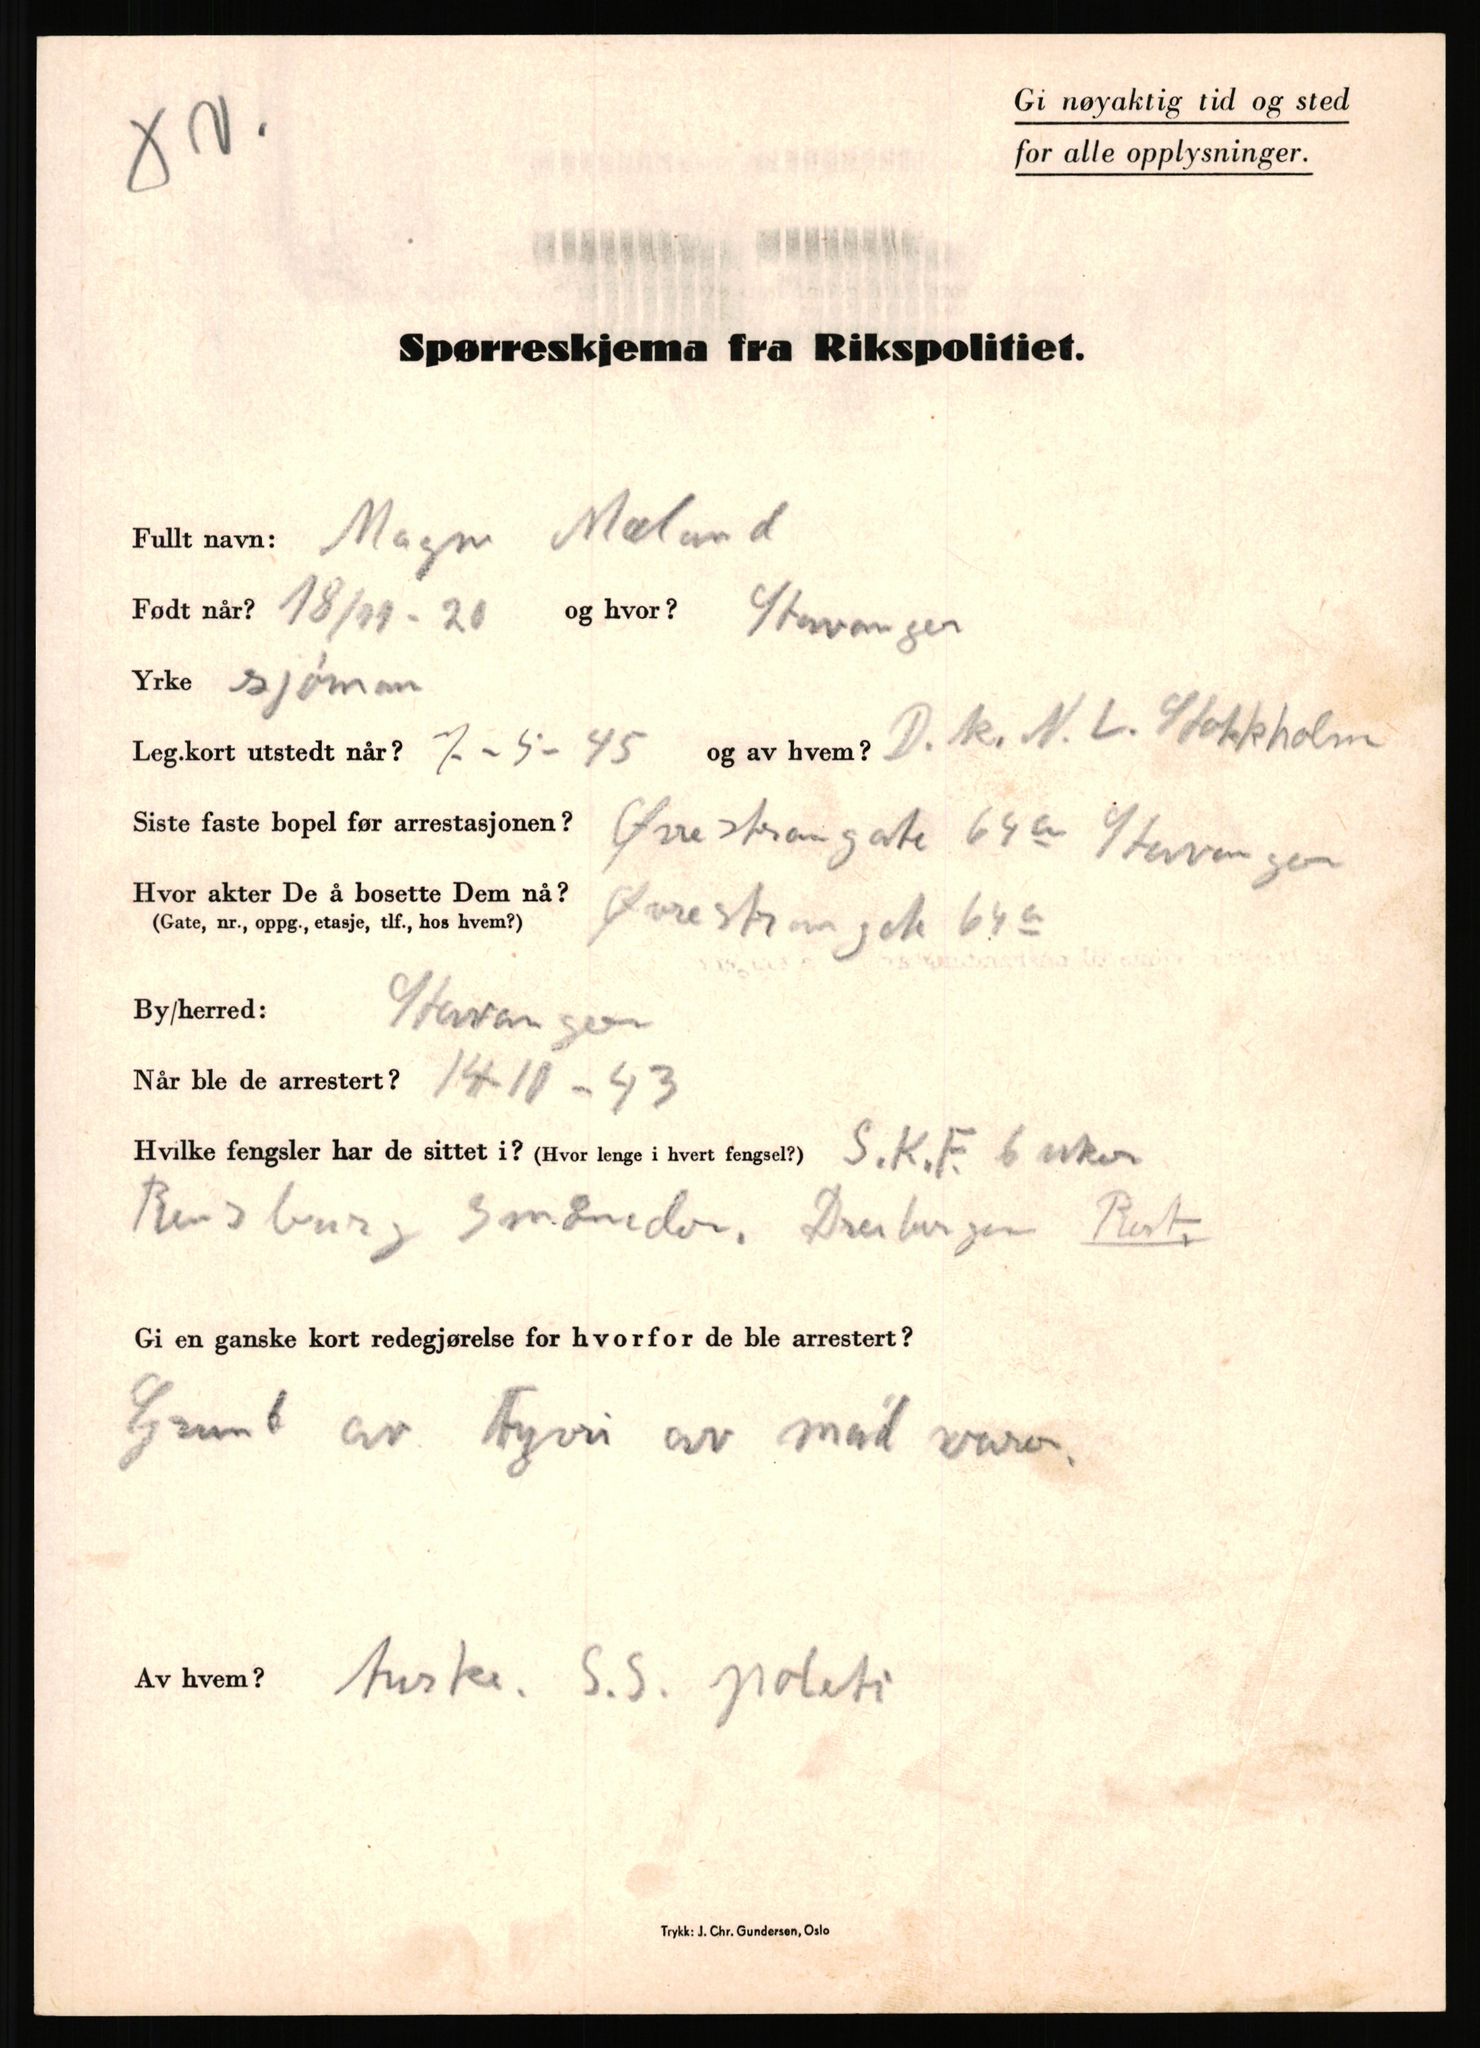 Gi nøyaktig tid og sted
for alle opplysninger.
Spørreskjema fra Rikspolitiet.
Fullt navn: Magne Mæland
Født når? 18/11-20 og hvor? Stavanger
Yrke sjöman
Leg.kort utstedt når? 7-5-45 og av hvem? D.K.N.L. Stokkholm
Siste faste bopel før arrestasjonen? Øvrestrangate 64a Stavanger
Hvor akter De å bosette Dem nå? Øvrestrangate 64a
(Gate, nr., oppg., etasje, tlf., hos hvem?)
By/herred: Stavanger
Når ble de arrestert? 14-10-43
Hvilke fengsler har de sittet i? (Hvor lenge i hvert fengsel?) S.K.F. 6 uker
Rensburg måneder. Dreibergen Rest.
Gi en ganske kort redegjørelse for hvorfor de ble arrestert?
Grunt av av vare.
Av hvem? S.S. poleti
Trykk: J. Chr. Gundersen, Oslo